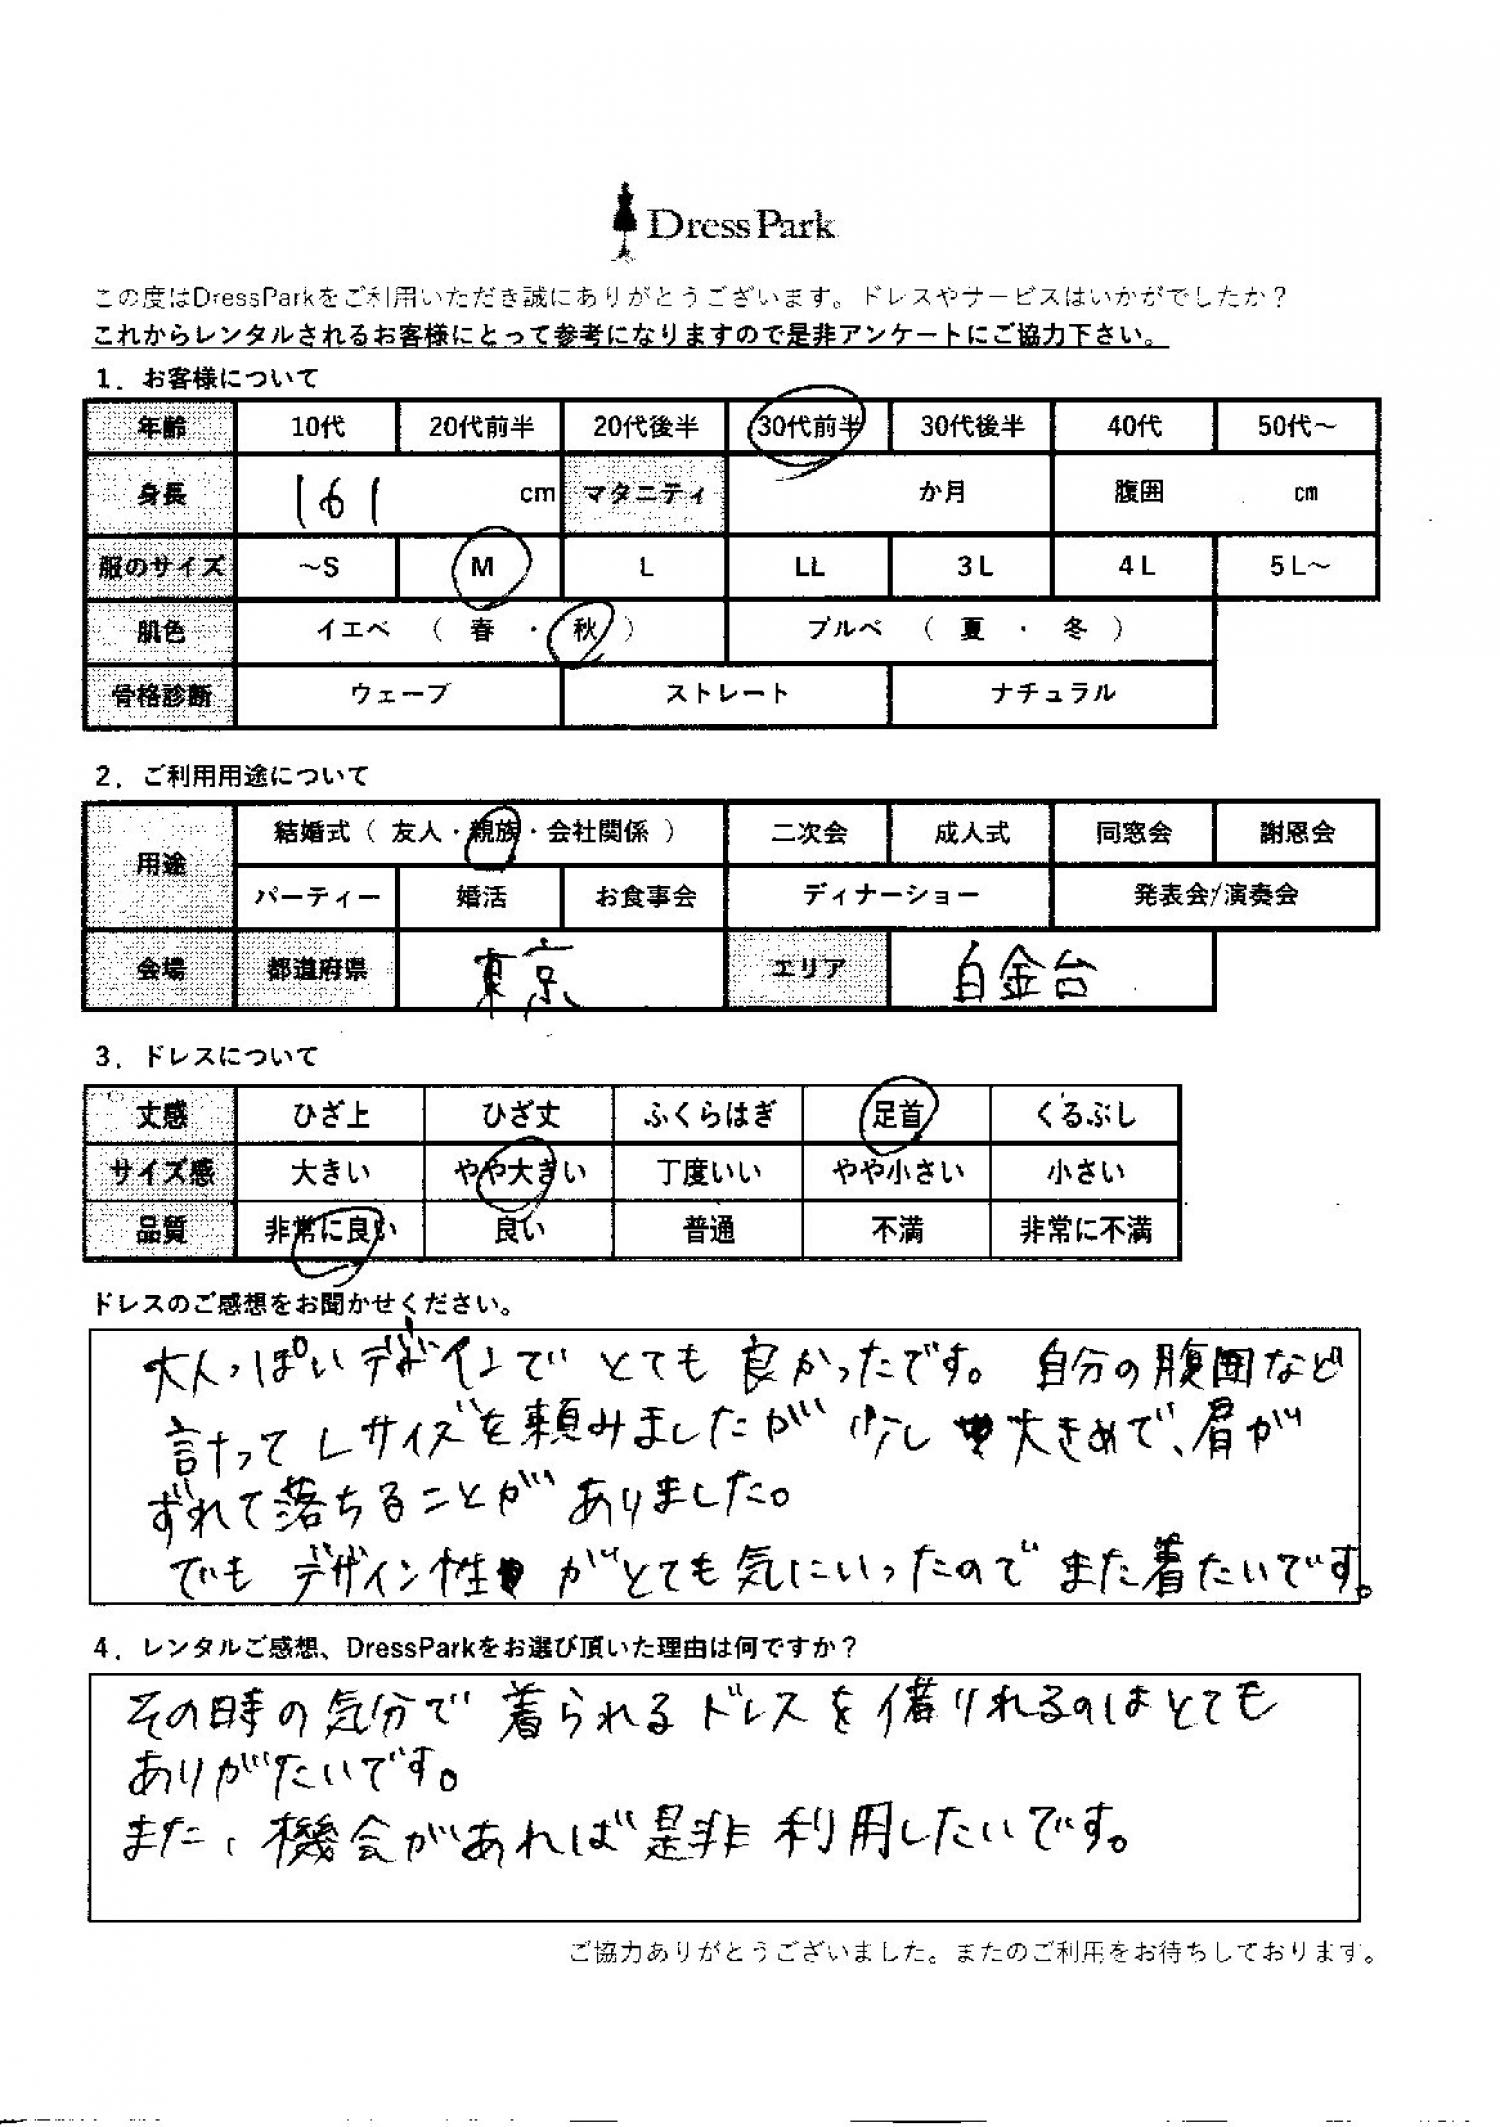 DressPark
この度はDressParkをご利用いただき誠にありがとうございます。ドレスやサービスはいかがでしたか？
これからレンタルされるお客様にとって参考になりますので是非アンケートにご協力下さい。
1．お客様について
年齢 10代 20代前半 20代後半 30代前半 30代後半 40代 50代～
身長 161 cm マタニティ か月 腹囲 cm
服のサイズ ～S M L LL 3L 4L 5L～
肌色 イエベ （ 春 ・ 秋 ） ブルベ （ 夏 ・ 冬 ）
骨格診断 ウェーブ ストレート ナチュラル
2．ご利用用途について
用途 結婚式（ 友人・親族・会社関係 ） 二次会 成人式 同窓会 謝恩会
パーティー 婚活 お食事会 ディナーショー 発表会/演奏会
会場 都道府県 東京 エリア 白金台
3．ドレスについて
丈感 ひざ上 ひざ丈 ふくらはぎ 足首 くるぶし
サイズ感 大きい やや大きい 丁度いい やや小さい 小さい
品質 非常に良い 良い 普通 不満 非常に不満
ドレスのご感想をお聞かせください。
大人っぽいデザインでとても良かったです。自分の腹囲など
言ってLサイズを頼みましたが少し大きめで、肩が
ずれて落ちることがありました。
でもデザイン性がとても気にいったのでまた着たいです。
4．レンタルご感想、DressParkをお選び頂いた理由は何ですか？
その時の気分で着られるドレスを借りれるのはとても
ありがたいです。
また、機会があれば是非利用したいです。
ご協力ありがとうございました。またのご利用をお待ちしております。